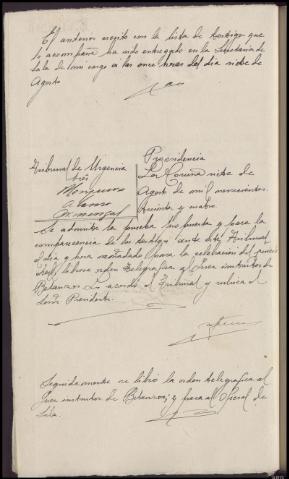 El anterior escrito con la lista de testigos que
le acompaña ha sido entregado en la Secretaria de
Sala de mi cargo a las once horas del dia siete de
Agosto
Tribunal de Urgencia
Sres
Providencia
La Coruña siete de
Agosto de mil novecientos
treinta y cuatro.
Se admite la prueba propuesta y para la
comparecencia de los testigos ante este Tribunal
el dia y hora señalado para la celebracion del juicio
librese orden telegrafica al Juez instructor de
Betanzos. Lo acordó el Tribunal y rubrica el
Señor Presidente.
Seguidamente se libró la orden telegrafica al
Juez instructor de Betanzos, y para al Oficial de
Sala.